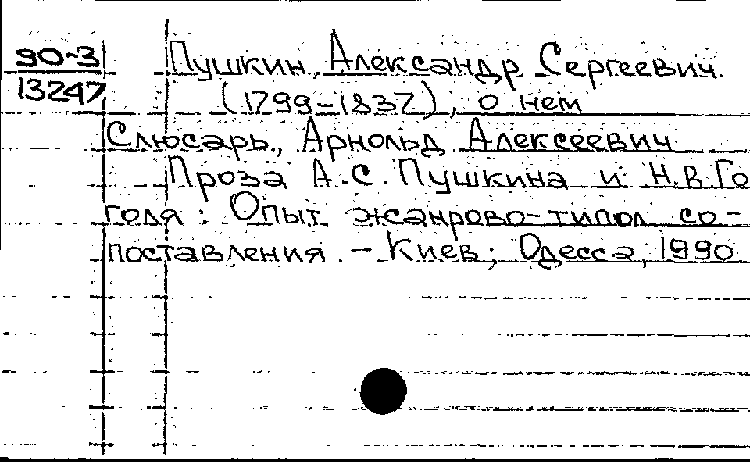 90-3
13247
Пушкин, Александр Сергеевич.
(1799-1837), о нем
Слюсарь, Арнольд Алексеевич
Проза А.С. Пушкина и Н.В. Го
голя: Опыт жанрово-типол со-
поставления. - Киев; Одесса, 1990